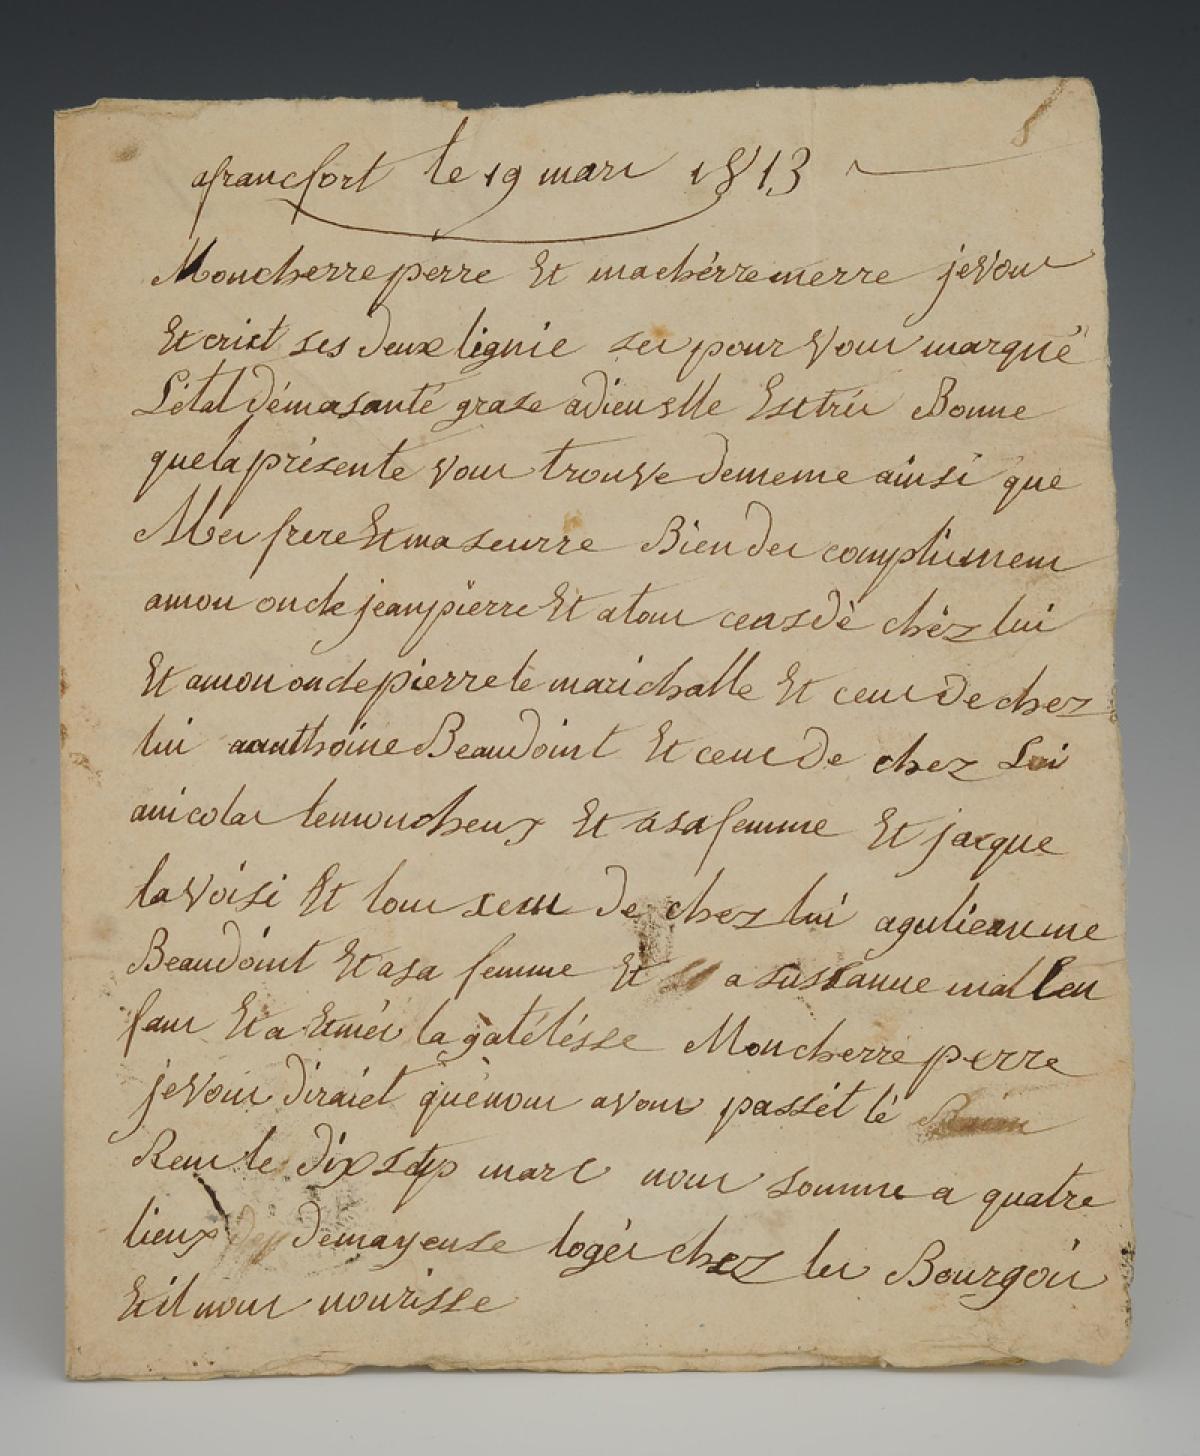 afrancfort le 19 mars 1813
Moncherre perre Et machérremerre jevous
Etcrist ses deux lignie ses pour vous marqué
Létat démasanté grase adieu elle Esttrés Bonne
quelaprésente vous trouve dememe ainsi que
Mes frere Etmaseurre Bien des complimens
amon oncle jeanpierre Et atous ceusdè chéz lui
Et amon oncle pierre le marichalle Et ceus de chez
lui aanthoine Beaudoint Et ceus de chez Lui
anicolas lemoucheux Et asafemme Et jacque
lavoisi Et tous seus de chez lui agulieaume
Beaudoint Et asa femme Et a sussanne mallen
fans Et a Etméé la gatélésse Moncherre perre
jevous diraiet quénous avons passét lé
Rens le dix setp mars nous somme a quatre
lieux demayense logés chez les Bourgois
Et il nous nourisse